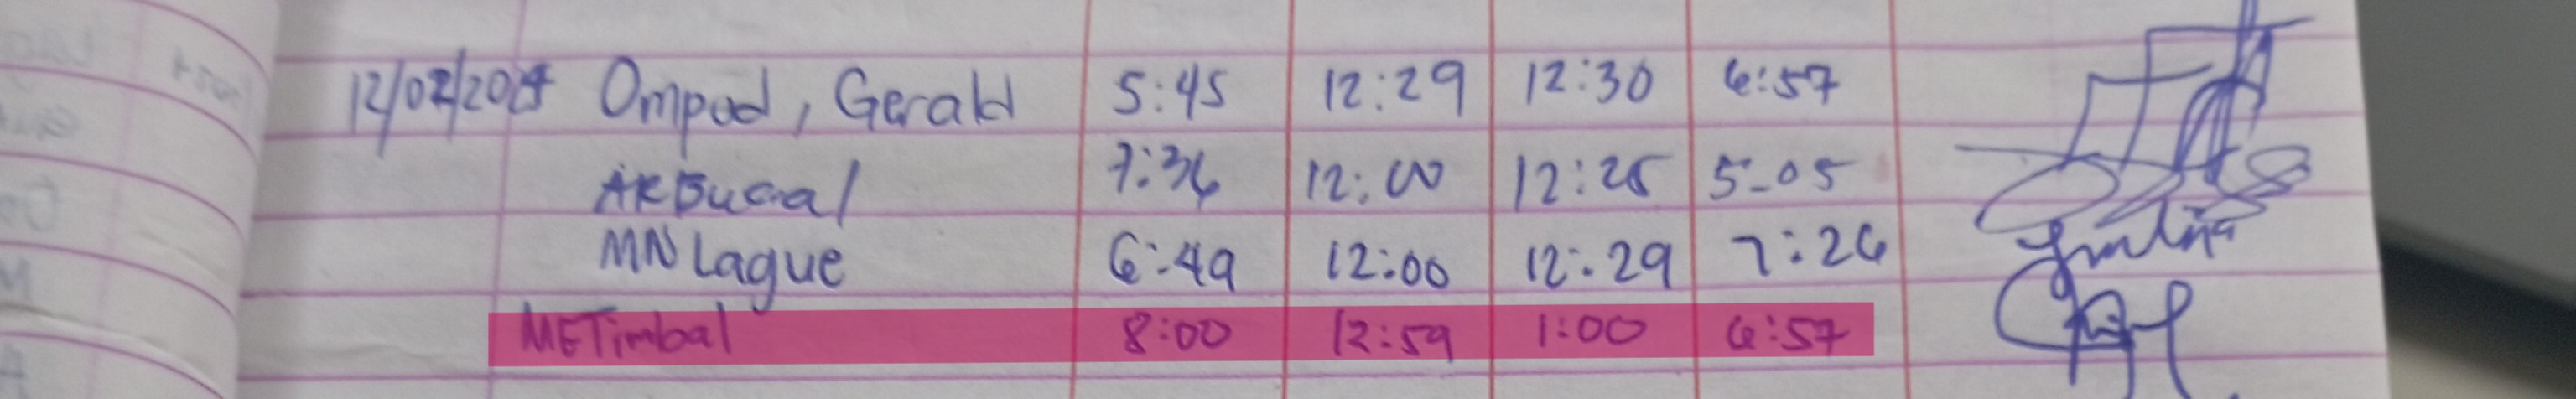 12/02/2024 Ompod, Gerald 5:45 12:29 12:30 6:57
ARBucal 7:36 12:00 12:25 5-05
MN Lague 6:49 12:00 12:29 7:26
METimbal 8:00 12:59 1:00 6:57